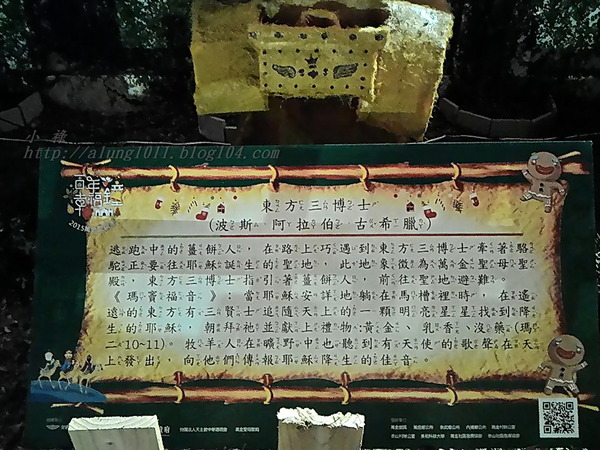 小錄
http://alung1011.blog104.com
百年
幸福
2015
東方三博士
(波斯 阿拉伯 古希臘)
逃跑中的薑餅人,在路上巧遇到東方三博士牽著駱
駝正要往耶穌誕生的聖地,此地象徵為萬金聖母聖
殿,東方三博士指引著薑餅人,前往聖地避難。
《瑪竇福音》:當耶穌安詳地躺在馬槽裡時,在遙
遠的東方有三賢士追隨天上的一顆明亮星星找到降
生的耶穌,朝拜祂並獻上禮物:黃金、乳香、沒藥(瑪
二10~11)。牧羊人在曠野中也聽到有天使的歌聲在天
上發出,向他們傳報耶穌降生的佳音。